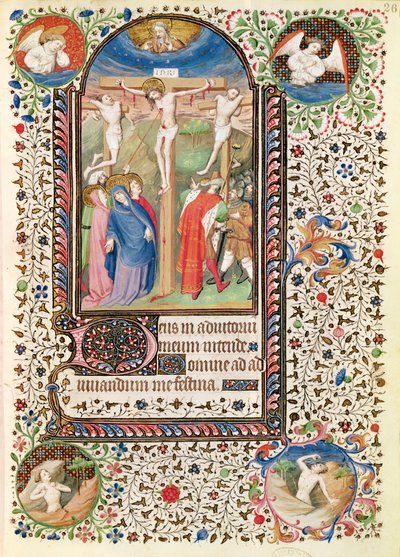 26
INRI
Deus in adiutoriu
meum intende
Domine ad ad
iuuandum me festina.